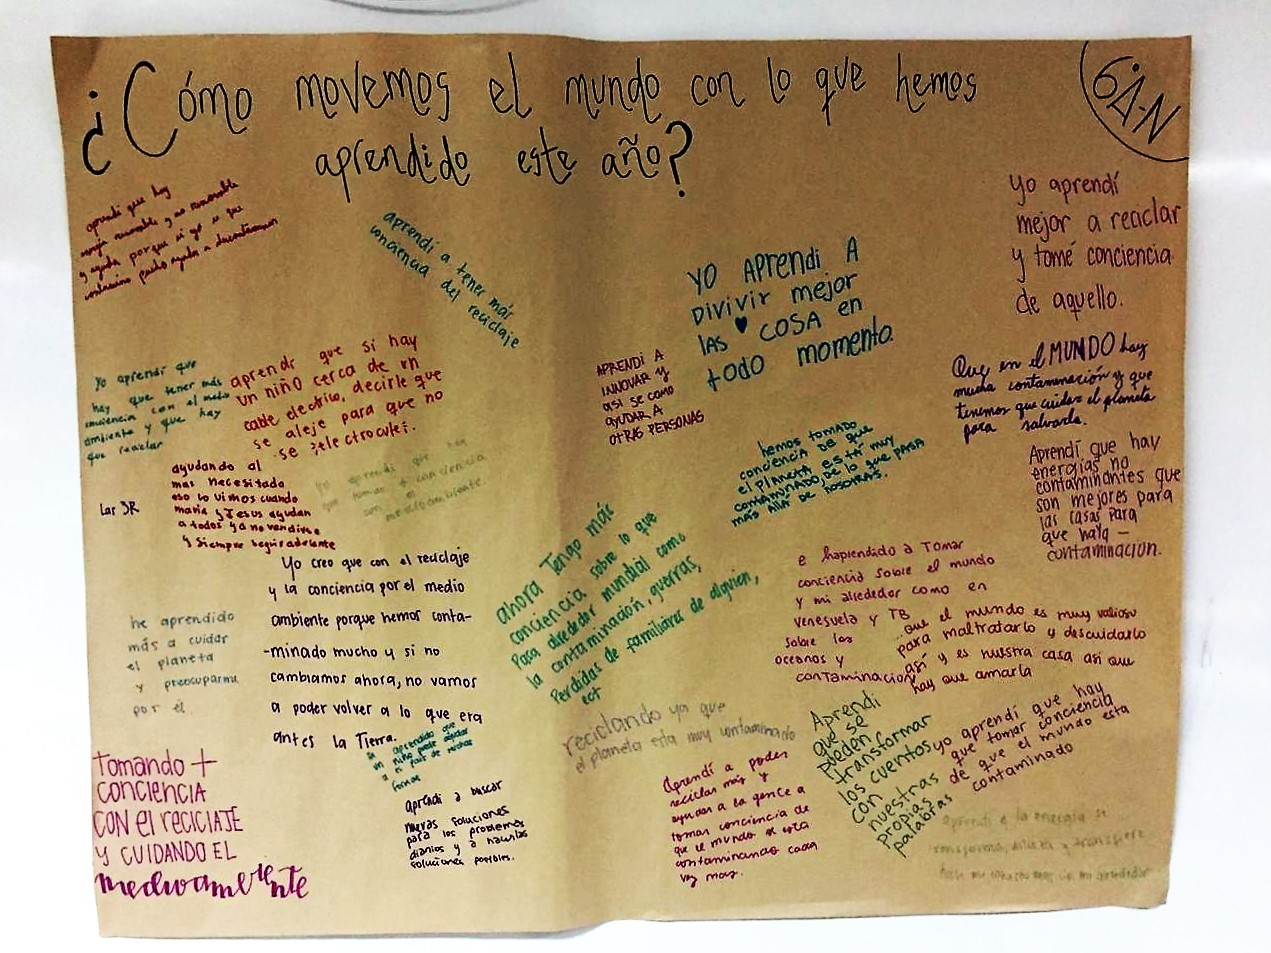 ¿Cómo movemos el mundo con lo que hemos
aprendido este año?
6ºA-N
aprendí que hay
energía renovable y no renovable
y ayuda porque si yo se que
contamino puedo ayudar a
aprendí a tener más
conciencia del reciclaje
YO APRENDí A
DIVIVIR mejor
las ♥ COSA en
todo momento.
Yo aprendí
mejor a reciclar
y tomé conciencia
de aquello.
Yo aprendí que
hay que tener más
conciencia con el medio
ambiente y que hay
que reciclar
aprendr que si hay
un niño cerca de un
cable electrio, decirle que
se aleje para que no
se electrocute.
APRENDí A
INNOVAR Y
así se como
AYUDAR A
OTRAS PERSONAS
Que en el MUNDO hay
mucha contaminación y que
tenemos que cuidar el planeta
para salvarlo.
Las 3R
ayudando al
mas necesitado
eso lo vimos cuando
maria y Jesus ayudan
a todos ya no rendirse
y siempre seguir adelante
Yo aprendí que hay
que tomar + conciencia
con el
medioambiente.
hemos tomado
conciencia de que
el planeta está muy
contaminado, de lo que pasa
más allá de nosotros.
Aprendí que hay
energías no
contaminantes que
son mejores para
las casas para
que haya -
contaminacion.
Yo creo que con el reciclaje
y la conciencia por el medio
ambiente porque hemos conta-
-minado mucho y si no
cambiamos ahora, no vamos
a poder volver a lo que era
antes la Tierra.
ahora Tengo más
conciencia sobre lo que
pasa alrededor mundial como
la contaminación, guerras,
Perdidas de familiares de alguien,
ect
e hapiendido a Tomar
conciencia sobre el mundo
y mi alrededor como en
venesuela y TB
sobre los
oceanos y
contaminacion
que el mundo es muy valioso
para maltratarlo y descuidarlo
así y es nuestra casa asi que
hay que amarla
he aprendido
más a cuidar
el planeta
y preocuparme
por él
reciclando ya que
el planeta esta muy contaminado
e aprendido que
un niño puede ayudar
a n país de muchas
formas
Tomando +
conciencia
con el reciclaje
y cuidando el
medioambiente
aprendi a buscar
nuevas soluciones
para los problemas
diarios y a hacerlas
soluciones posibles.
Aprendí a poder
reciclar más y
ayudar a la gente a
tomar conciencia de
que el mundo se esta
contaminando cada
vez mas.
Aprendi
que se
pueden
transformar
los cuentos
con
nuestras
propias
palabras
yo aprendí que hay
que tomar conciencia
de que el mundo esta
contaminado
aprendí q la energía se
transforma, utiliza y transfiere